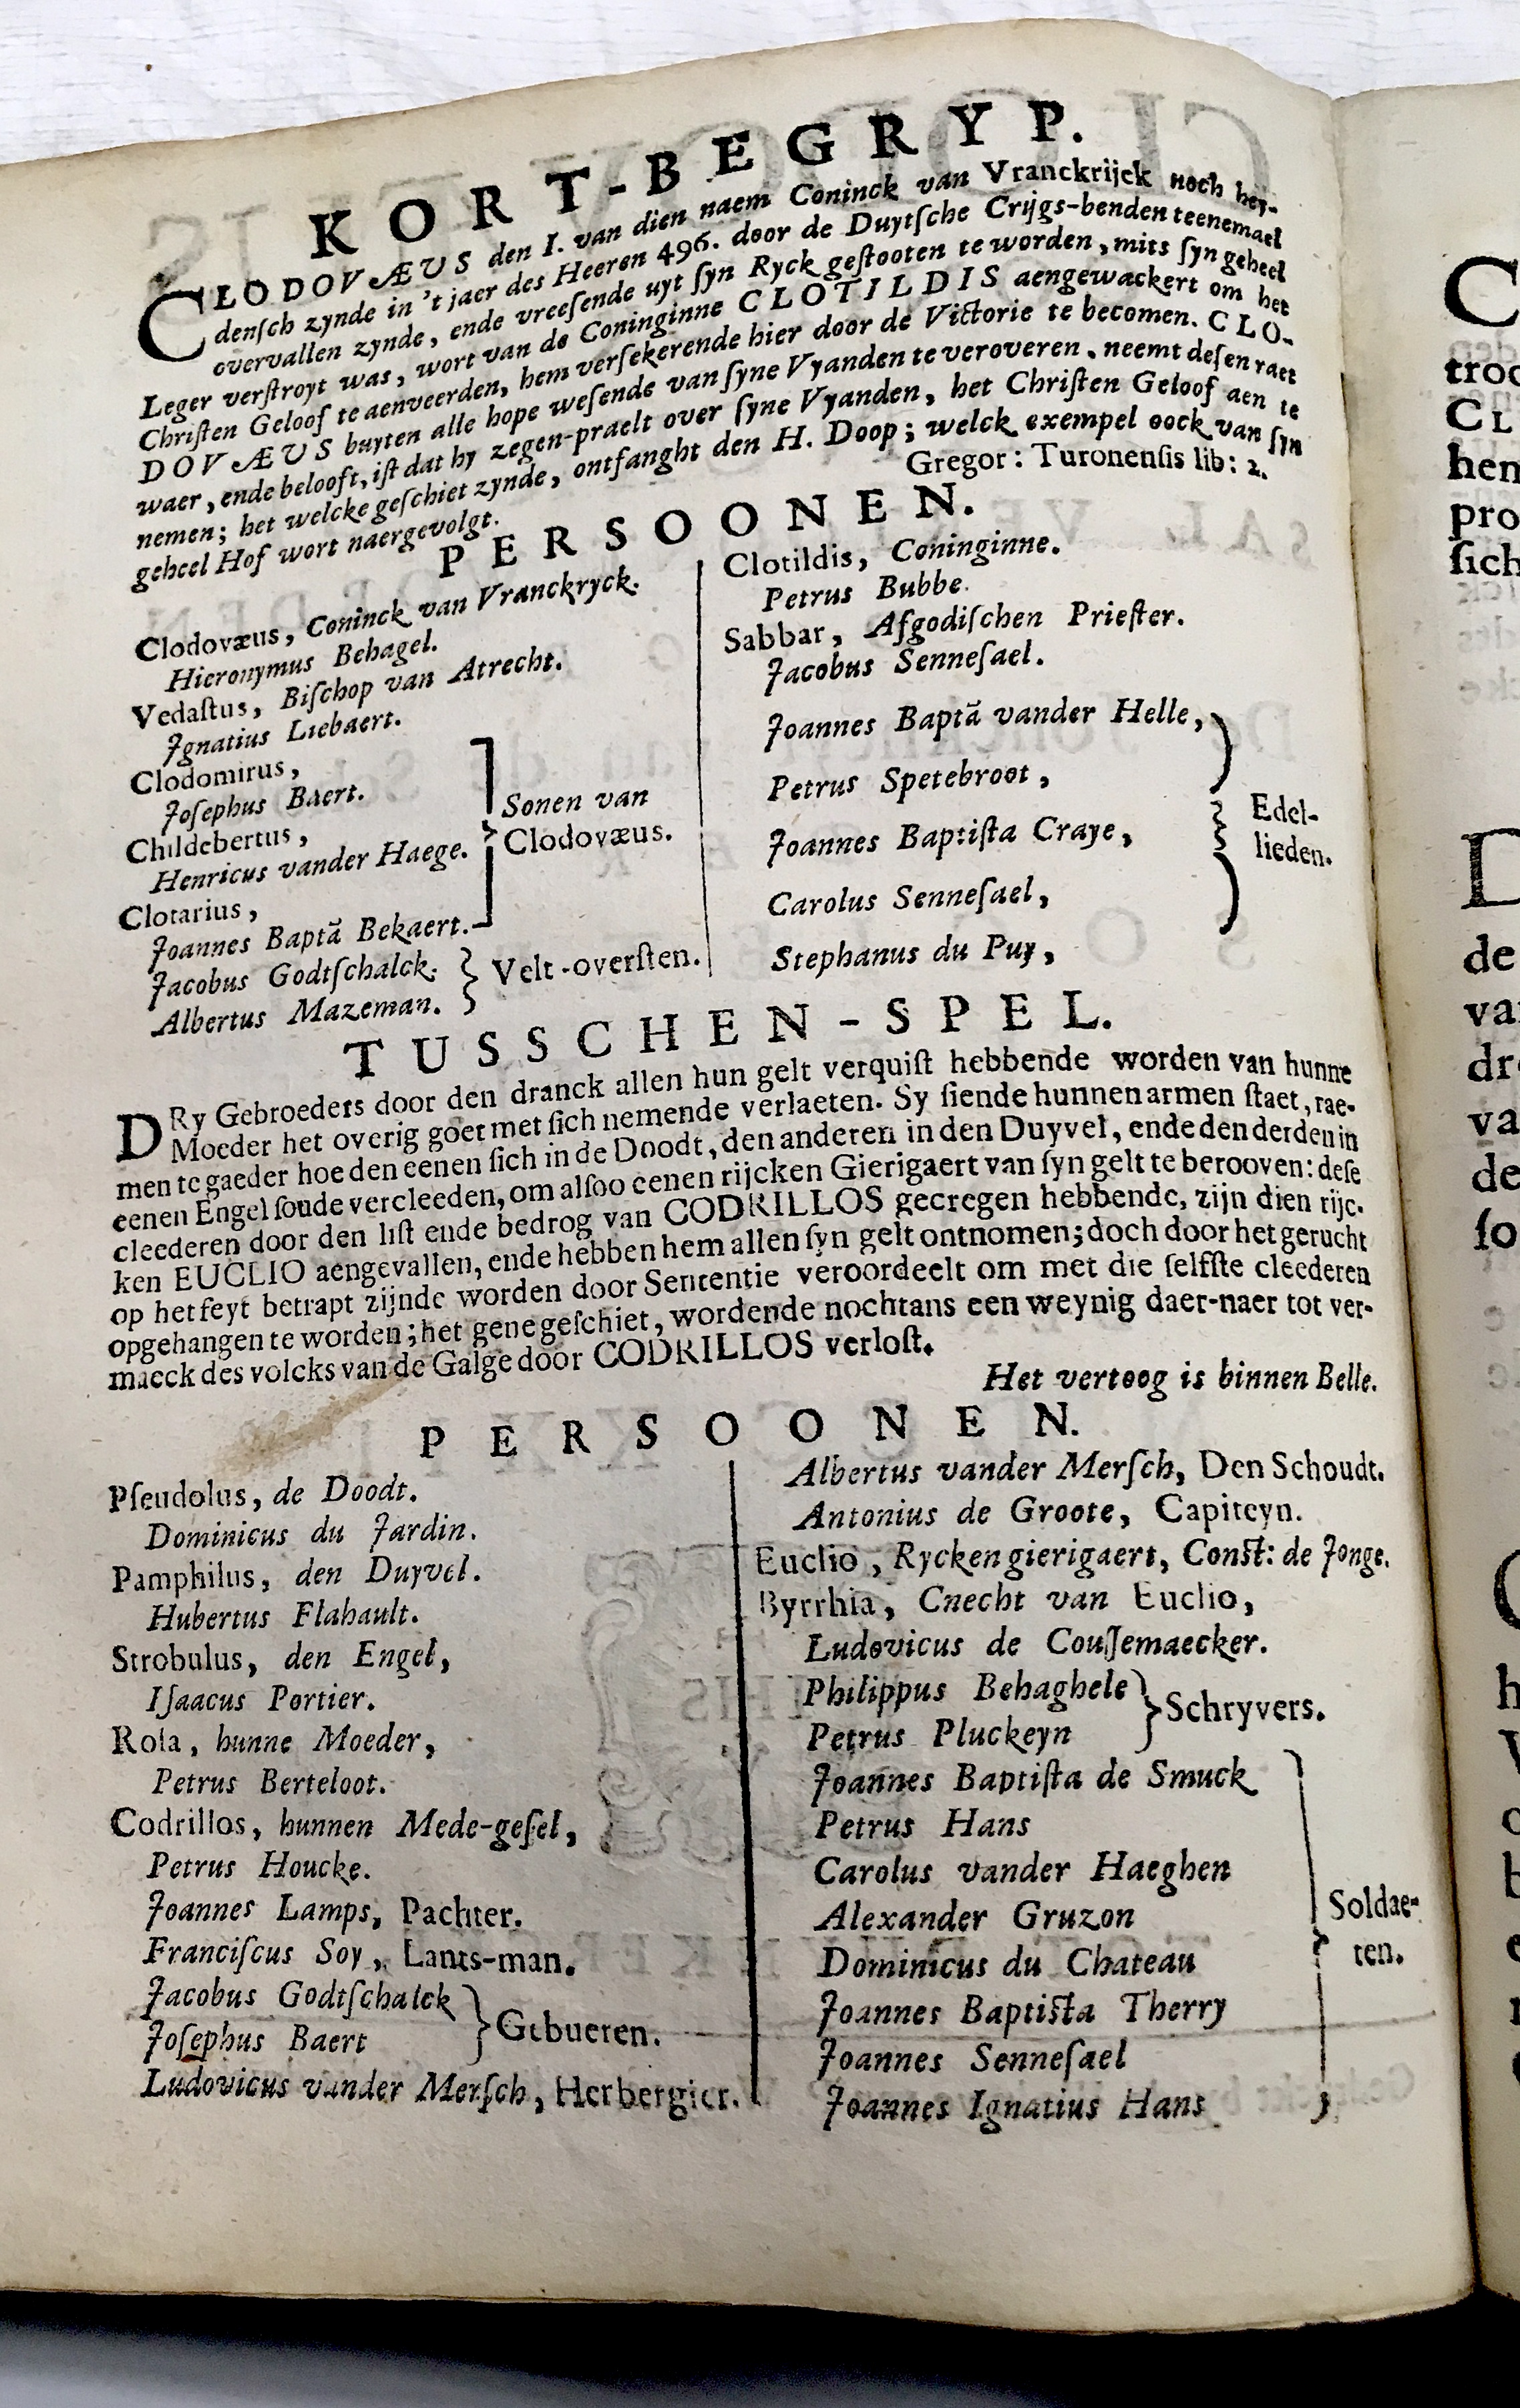 KORT-BEGRYP.
CLODOVÆUS den I. van dien naem Coninck van Vranckrijck noch hey-
denſch zynde in 't jaer des Heeren 496. door de Duytſche Crijgs-benden teenemael
overvallen zynde, ende vreeſende uyt ſyn Ryck geſtooten te worden, mits ſyn geheel
Leger verſtroyt was, wort van de Coninginne CLOTILDIS aengewackert om het
Chriſten Geloof te aenveerden, hem verſekerende hier door de Victorie te becomen. CLO-
DOVÆUS buyten alle hope weſende van ſyne Vyanden te veroveren, neemt deſen raet
waer, ende belooft, iſt dat hy zegen-praelt over ſyne Vyanden, het Chriſten Geloof aen te
nemen; het welcke geſchiet zynde, ontfanght den H. Doop; welck exempel oock van ſyn
geheel Hof wort naergevolgt.
Gregor: Turonenſis lib: 2.
PERSOONEN.
Clodovæus, Coninck van Vranckryck.
Hieronymus Behagel.
Vedaſtus, Biſchop van Atrecht.
Jgnatius Liebaert.
Clodomirus,
Joſephus Baert.
Childebertus,
Henricus vander Haege.
Clotarius,
Joannes Baptã Bekaert.
Sonen van
Clodovæus.
Jacobus Godtſchalck.
Albertus Mazeman.
Velt-overſten.
Clotildis, Coninginne.
Petrus Bubbe.
Sabbar, Afgodiſchen Prieſter.
Jacobus Senneſael.
Joannes Baptã vander Helle,
Petrus Spetebroot,
Joannes Baptiſta Craye,
Carolus Senneſael,
Stephanus du Puy,
Edel-
lieden.
TUSSCHEN-SPEL.
DRy Gebroeders door den dranck allen hun gelt verquiſt hebbende worden van hunne
Moeder het overig goet met ſich nemende verlaeten. Sy ſiende hunnen armen ſtaet, rae-
men te gaeder hoe den eenen ſich in de Doodt, den anderen in den Duyvel, ende den derden in
eenen Engel ſoude vercleeden, om alſoo eenen rijcken Gierigaert van ſyn gelt te berooven: deſe
cleederen door den liſt ende bedrog van CODRILLOS gecregen hebbende, zijn dien rijc-
ken EUCLIO aengevallen, ende hebben hem allen ſyn gelt ontnomen; doch door het gerucht
op het feyt betrapt zijnde worden door Sententie veroordeelt om met die ſelfſte cleederen
opgehangen te worden; het gene geſchiet, wordende nochtans een weynig daer-naer tot ver-
maeck des volcks van de Galge door CODRILLOS verloſt.
Het vertoog is binnen Belle.
PERSOONEN.
Pſeudolus, de Doodt.
Dominicus du Jardin.
Pamphilus, den Duyvel.
Hubertus Flahault.
Strobulus, den Engel,
Iſaacus Portier.
Roſa, hunne Moeder,
Petrus Berteloot.
Codrillos, hunnen Mede-geſel,
Petrus Houcke.
Joannes Lamps, Pachter.
Franciſcus Soy, Lants-man.
Jacobus Godtſchalck
Joſephus Baert
Gebueren.
Ludovicus vander Merſch, Herbergier.
Albertus vander Merſch, Den Schoudt.
Antonius de Groote, Capiteyn.
Euclio, Rycken gierigaert, Conſt: de Jonge.
Byrrhia, Cnecht van Euclio,
Ludovicus de Couſſemaecker.
Philippus Behaghele
Petrus Pluckeyn
Schryvers.
Joannes Baptiſta de Smuck
Petrus Hans
Carolus vander Haeghen
Alexander Gruzon
Dominicus du Chateau
Joannes Baptiſta Therry
Joannes Senneſael
Joannes Ignatius Hans
Soldae-
ten.
C
troo
CL
hen
pro
ſich
D
de
va
dr
va
de
ſo